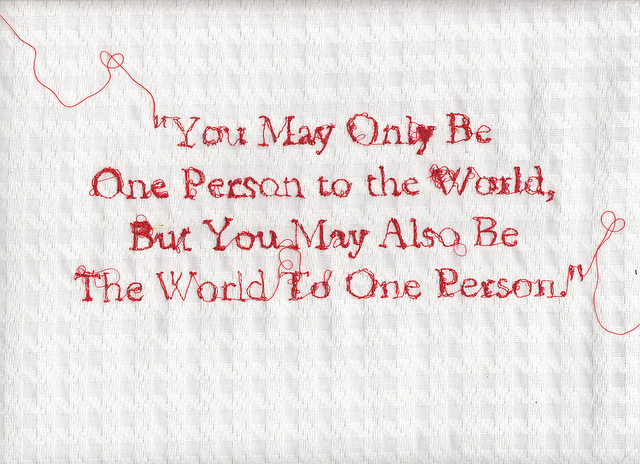 "You May Only Be
One Person to the World,
But You May Also Be
The World To One Person."